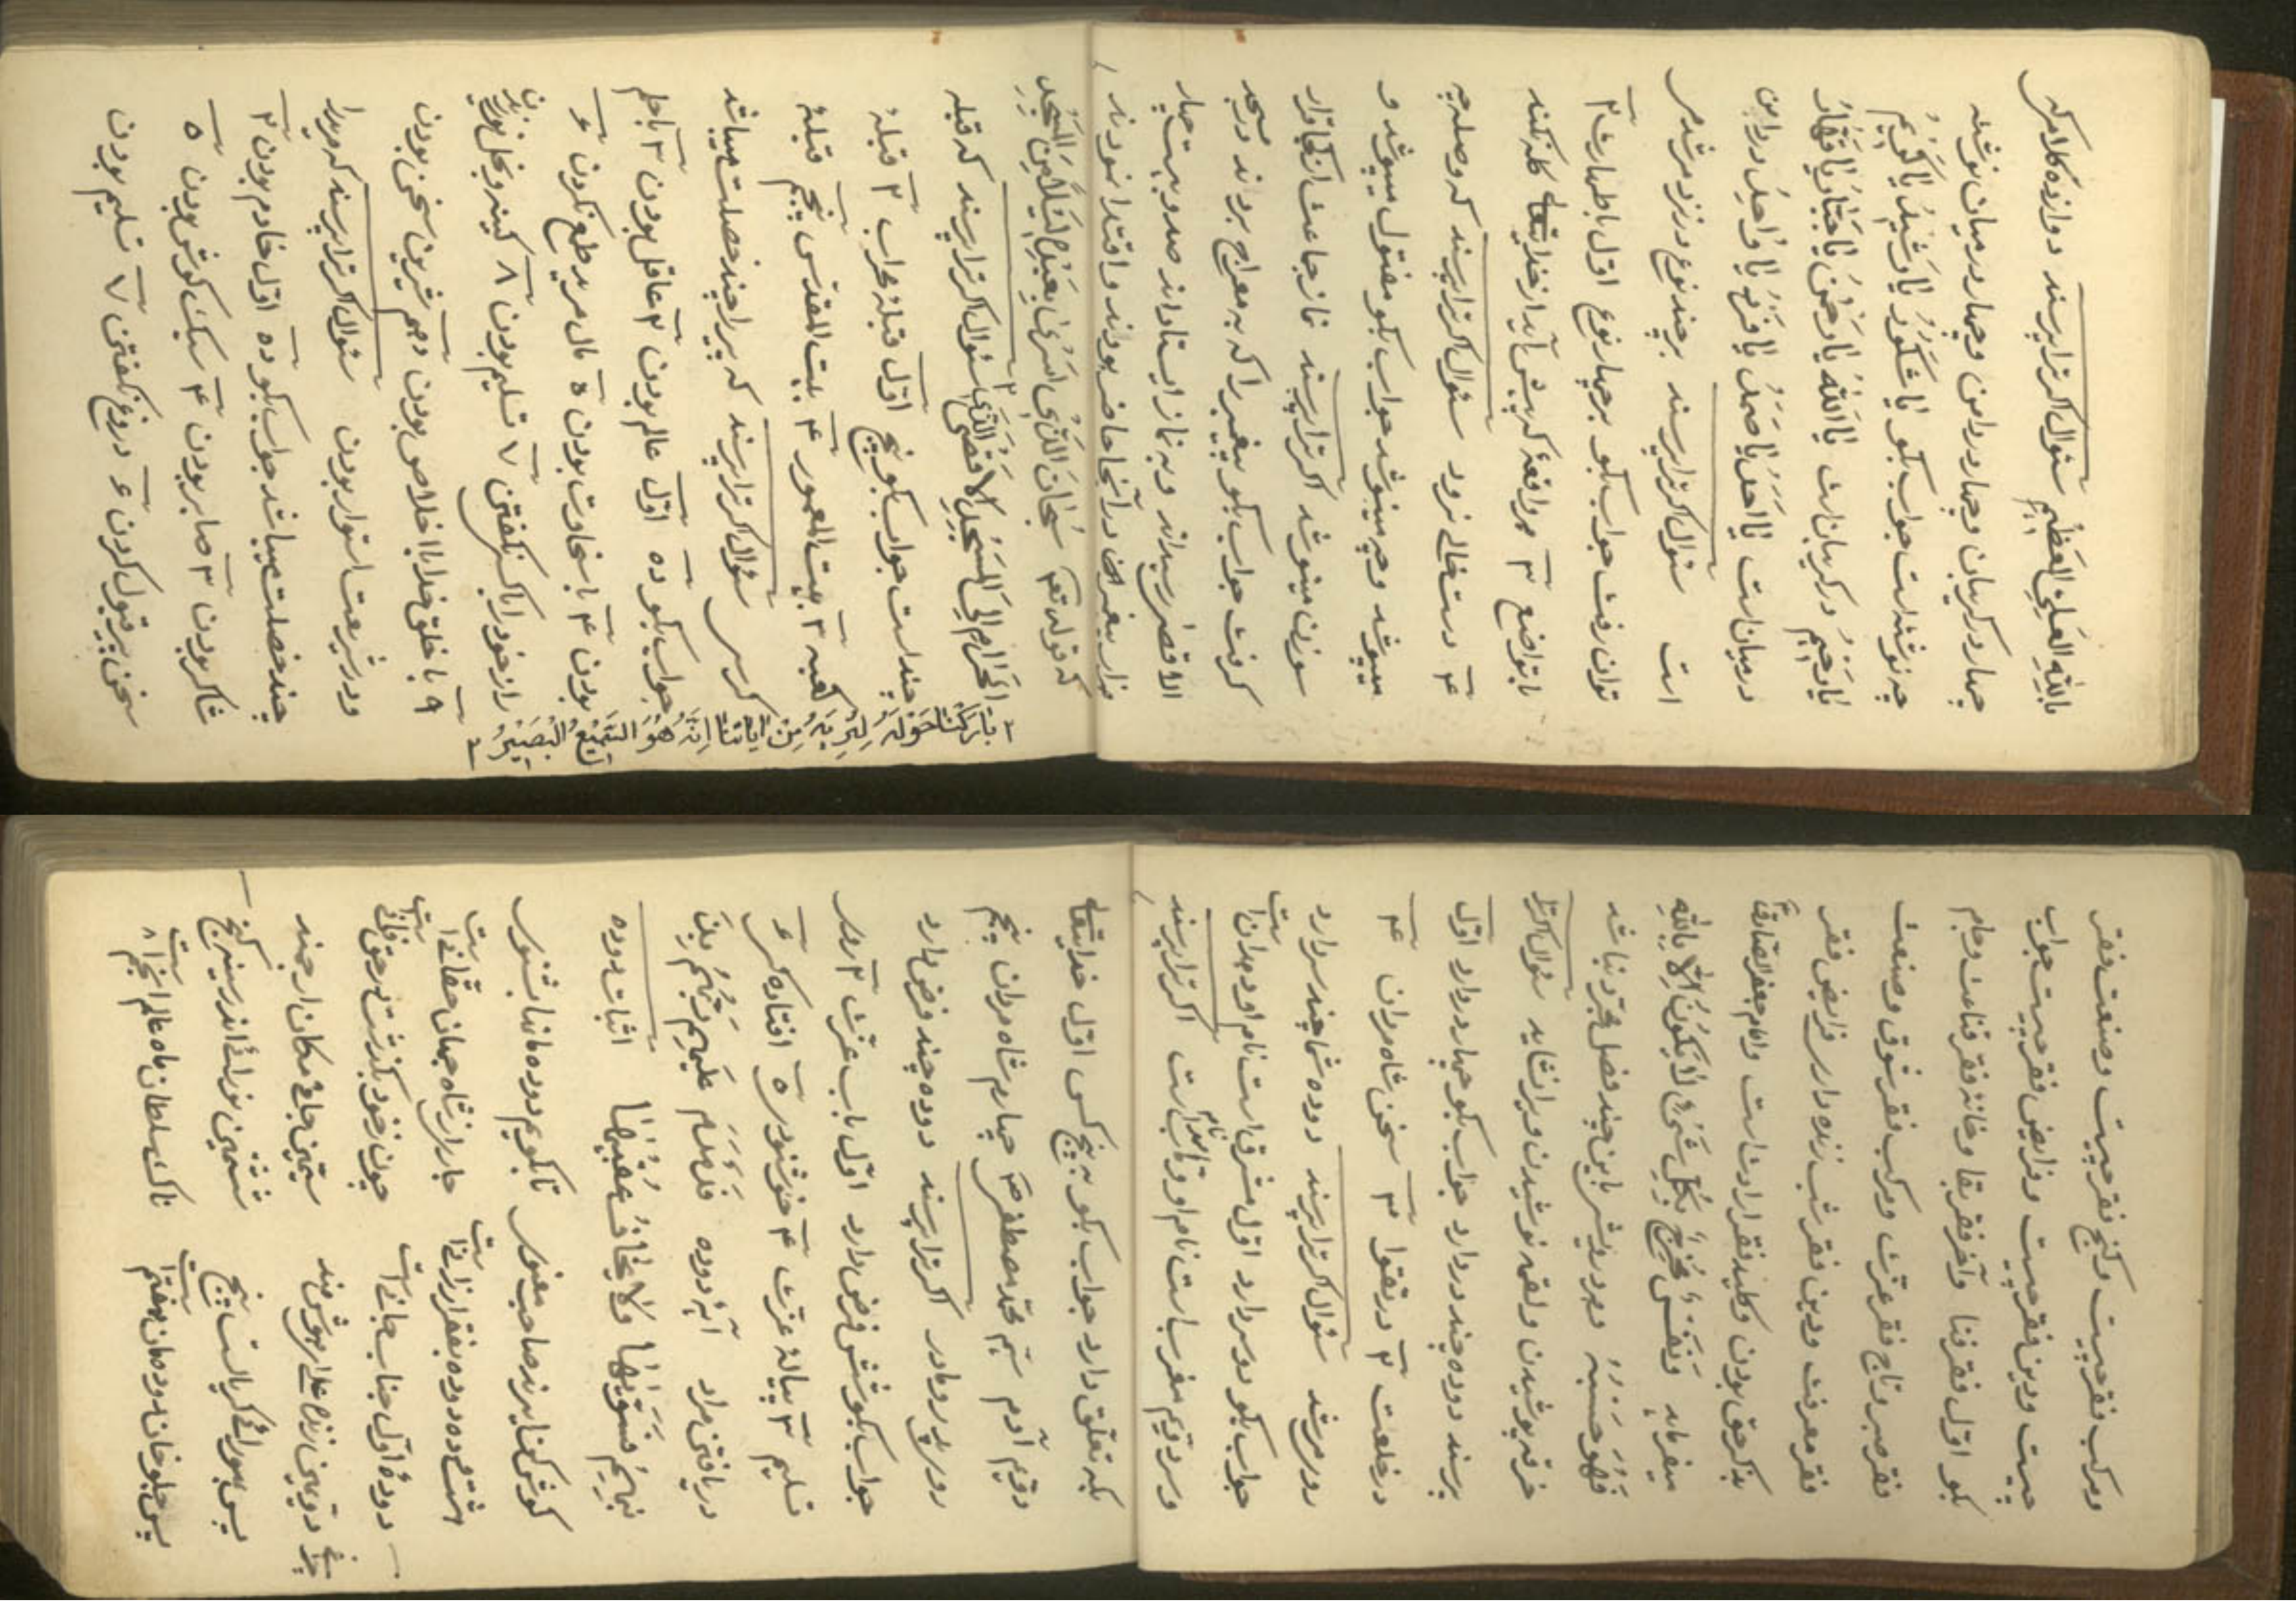 بالله العلی العظیم سئوال اگر ترا پرسند دوازده کلام که
چهار در گریبان و چهار در دامن و چهار در میان نوشته
چه نوشته است جواب بگو یا شکور یا رشید یا کریم
یا رحیم در گریبان است یا الله یا رحمن یا جبار یا قهار
در میان است یا احد یا صمد یا فرد یا واحد در دامن
است سئوال اگر ترا پرسند بر چند نوع در نزد مرشد
توان رفت جواب بگو بر چهار نوع اول باطهارت ۲
باتواضع ۳ هر واقعهٔ که پیش آید از خدایتعالی گله نکند
۴ دست خالی نرود سئوال اگر ترا پرسند که وصله چه
میپوشد و چه مینوشد جواب بگو مفتول میپوشد و
سوزن مینوشد اگر ترا پرسند نماز جماعت از کجا قرار
گرفت جواب بگو پیغمبر را که به معراج بردند در مسجد
الاقصی رسیدند و به نماز ایستادند صد و بیست چهار
هزار پیغمبران در آنجا حاضر بودند و اقتدا نمودند
که قوله تعه سُبْحَانَ الَّذِی أَسْرَیٰ بِعَبْدِهِ لَیْلًا مِنَ الْمَسْجِدِ
الْحَرَامِ إِلَی الْمَسْجِدِ الْأَقْصَی الَّذِی ۲ سئوال اگر ترا پرسند که قبله
۲ بَارَکْنَا حَوْلَهُ لِنُرِیَهُ مِنْ آیَاتِنَا إِنَّهُ هُوَ السَّمِیعُ الْبَصِیرُ
چند است جواب بگو پنج اول قبلهٔ محراب ۲ قبلهٔ
کعبه ۳ بیت المعمور ۴ بیت المقدس پنجم قبلهٔ
سئوال اگر ترا پرسند که پیر را چند خصلت میباشد
جواب بگو ده اول عالم بودن ۲ عاقل بودن ۳ باحلم
بودن ۴ باسخاوت بودن ۵ مال مرید طمع نکردن ۶
راز خود را با کس نگفتن ۷ تسلیم بودن ۸ کینه و بخل نورزیدن
۹ با خلق خدا با اخلاص بودن دهم شیرین سخن بودن
و در شریعت استوار بودن سئوال اگر ترا پرسند که مرید را
چند خصلت میباشد جواب بگو ده اول خادم بودن ۲
شاکر بودن ۳ صابر بودن ۴ سبک گوش بودن ۵
سخن پیر قبول کردن ۶ دروغ نگفتن ۷ تسلیم بودن
و مرکب فقر چیست و گنج فقر چیست و صنعت فقر
چیست و دین فقر چیست و فرایض فقر چیست جواب
بگو اول فقر فنا و آخر فقر بقا و خانه فقر قناعت و جام
فقر صبر و تاج فقر عزت و مرکب فقر شوق و صنعت
فقر معرفت و دین فقر شب زنده دار و فرایض فقر
بذکر حق بودن و کلید فقر ارادت است و امام جعفر الصادق
میفرماید وَ نَفَسٌ مُخْرِجٌ بِکُلِّ شَیْءٍ لَا یَکُونُ إِلَّا بِاللهِ
فَهُوَ حَسْبُهُ و هر درویش باین چند فضل مجرد نباشد
خرقه پوشیدن و لقمه نوشیدن ویرا نشاید سئوال اگر ترا
پرسند دوده چند در دارد جواب بگو چهار در دارد اول
در خلعت ۲ در تقوا ۳ سخن شاه مردان ۴
روی مرشد سئوال اگر ترا پرسند دوده شما چند سر دارد
جواب بگو دو سر دارد اول مشرق است نام او دهر انا است
و سر دویم مغرب است نام او اگر ترا پرسند
بکه تعلق دارد جواب بگو به پنج کس اول خدایتعالی
دویم آدم سیم محمد مصطفی ص چهارم شاه مردان پنجم
روی پدر و مادر اگر ترا پرسند دوده چند فرض دارد
جواب بگو شش فرض دارد اول باب عزت ۲
تسلیم ۳ پیالهٔ عزت ۴ خوشنودی ۵ افتاده گی ۶
دریافتن مراد آیهٔ دوده فَدَمْدَمَ عَلَیْهِمْ رَبُّهُمْ بِذَنْ
بِهِمْ فَسَوَّاهَا وَلَا یَخَافُ عُقْبَاهَا اثبات دوده
گوش کن ایمرد صاحب معنوی تا بگویم دوده ما را بشنوی
هشت در ده دوده فقر از خداست چار از شاه جهان حقا نماست
دودهٔ اول جناب جانی است چون ز خود بگذشت در حق فانی است
دویمین زنده دلی از هوشمند سیمین جای و مکان ارجمند
پس سورائی کربلاست پنج ششمین نورانی اندر سینه گنج
پس جلو خان دودمان هفتم است تاک سلطان ماه عالم انجم است ۸